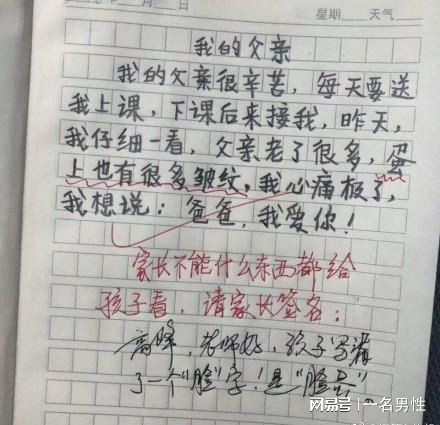 星期 天气
我的父亲
我的父亲很辛苦，每天要送
我上课，下课后来接我，昨天，
我仔细一看，父亲老了很多，蛋
上也有很多皱纹，我心痛极了，
我想说：爸爸，我爱你！
家长不能什么东西都给
孩子看，请家长签名：
高峰，老师好，孩子写漏
了一个“脸”字！是“脸蛋”。
网易号 | 一名男性